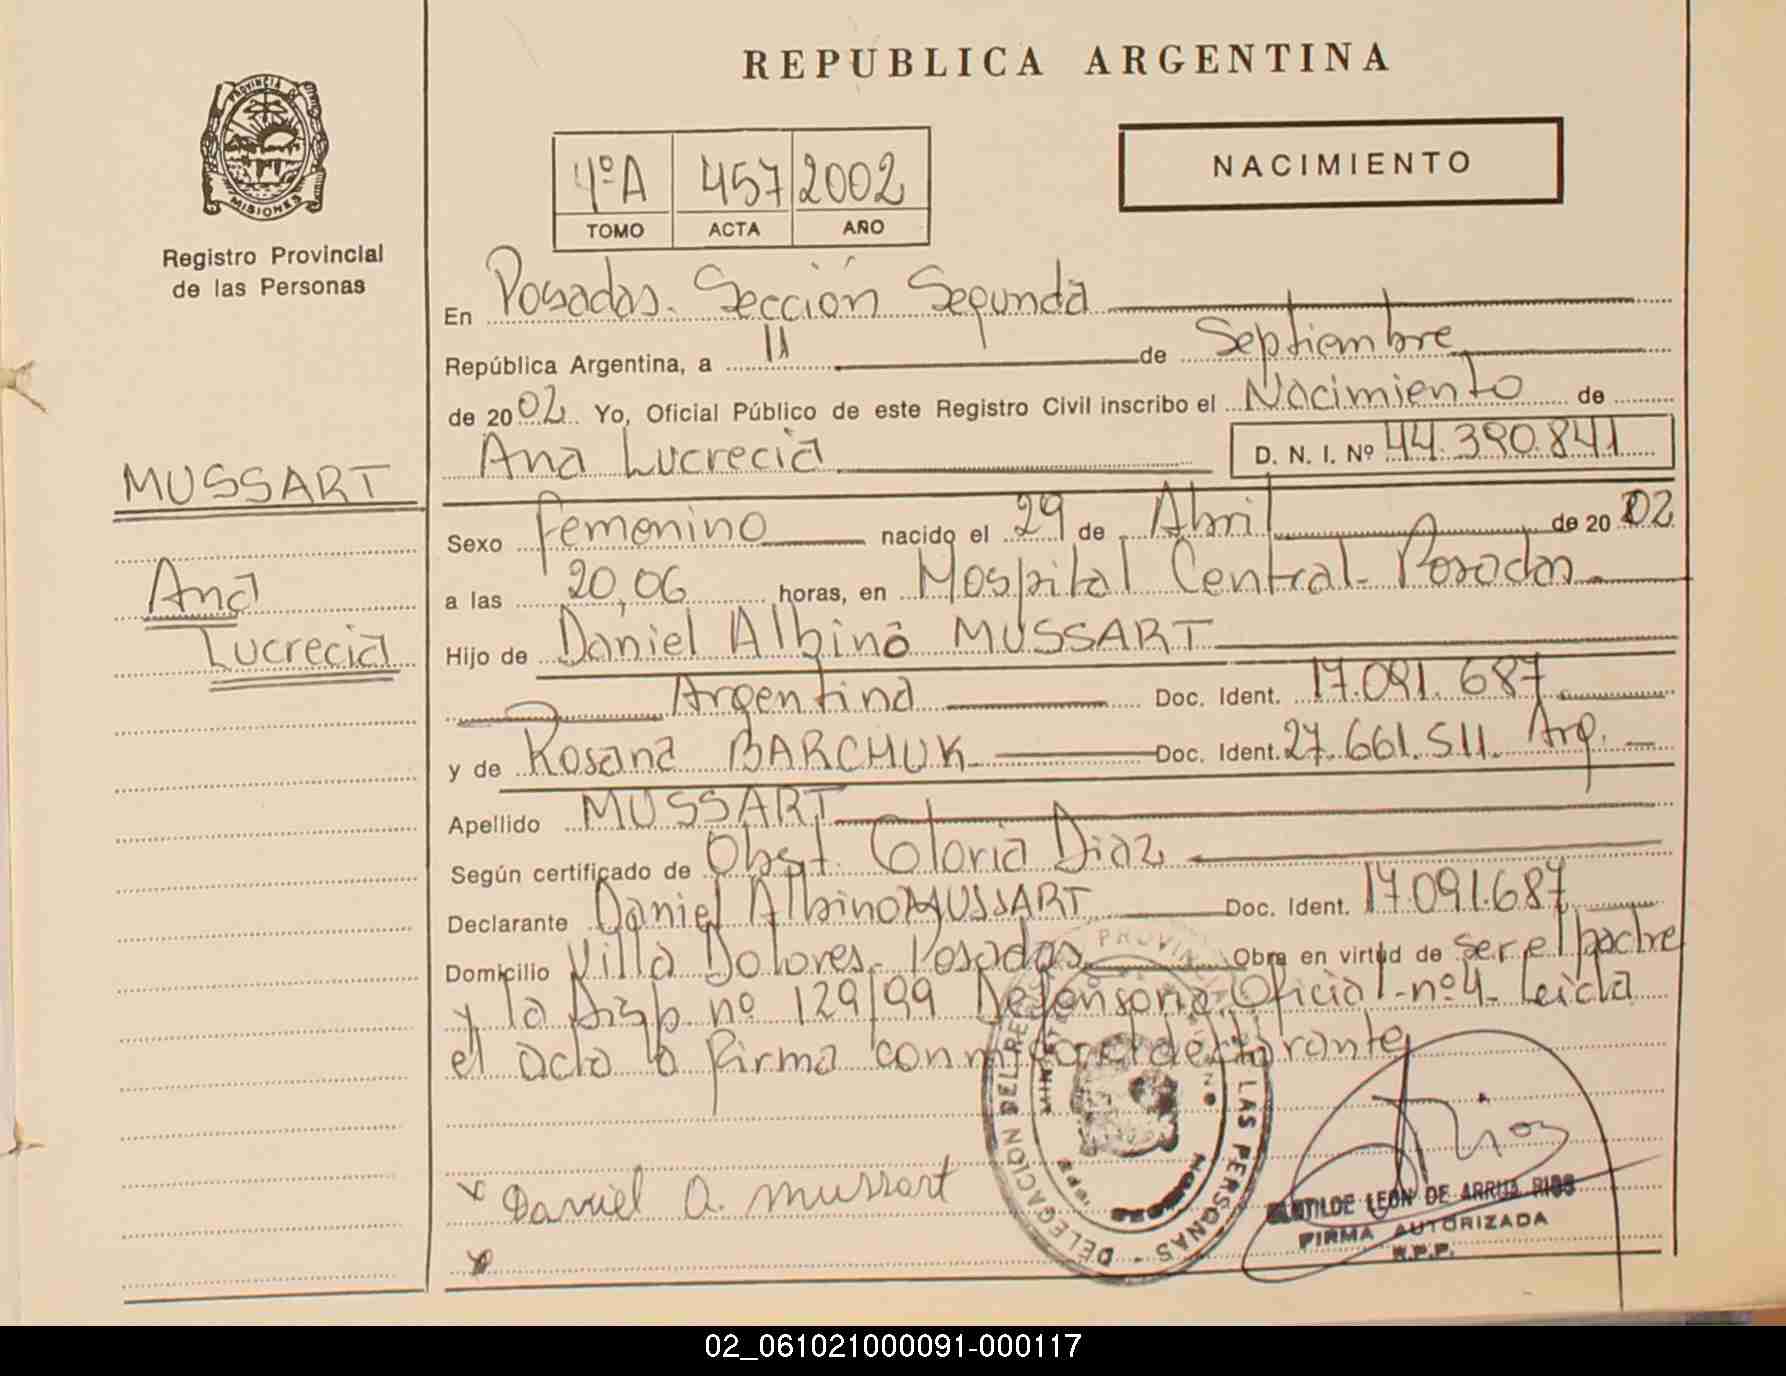 REPUBLICA ARGENTINA
PROVINCIA DE
MISIONES
Registro Provincial
de las Personas
NACIMIENTO
4ºA 457 2002
TOMO ACTA AÑO
En Posadas. Sección Segunda
República Argentina, a 11 de Septiembre
de 2002 Yo, Oficial Público de este Registro Civil inscribo el Nacimiento de
Ana Lucrecia D. N. I. Nº 44.390.841
MUSSART
Ana
Lucrecia
Sexo femenino nacido el 29 de Abril de 2002
a las 20,06 horas, en Hospital Central - Posadas.
Hijo de Daniel Albino MUSSART
Argentina Doc. Ident. 17.091.687
y de Rosana BARCHUK Doc. Ident. 27.661.511. Arg.
Apellido MUSSART
Según certificado de Obst. Gloria Diaz
Declarante Daniel Albino MUSSART Doc. Ident. 17.091.687
Domicilio Villa Dolores - Posadas Obra en virtud de ser el padre
y la Disp nº 129/99 Defensoria Oficial - nº 4 - Leida
el acta la firma conmigo el declarante
Daniel A. Mussart
DELEGACION DEL LAS PERSONAS
LEON DE ARRUA RIOS
FIRMA AUTORIZADA
R.P.P.
02_061021000091-000117